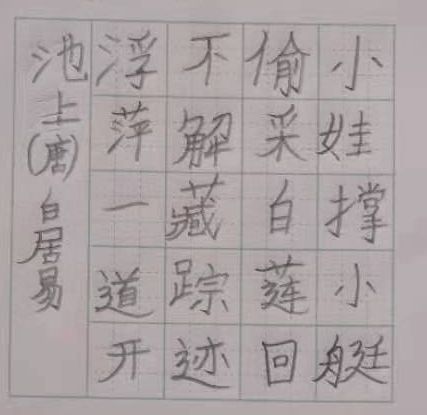 小娃撑小艇
偷采白莲回
不解藏踪迹
浮萍一道开
池上(唐)白居易